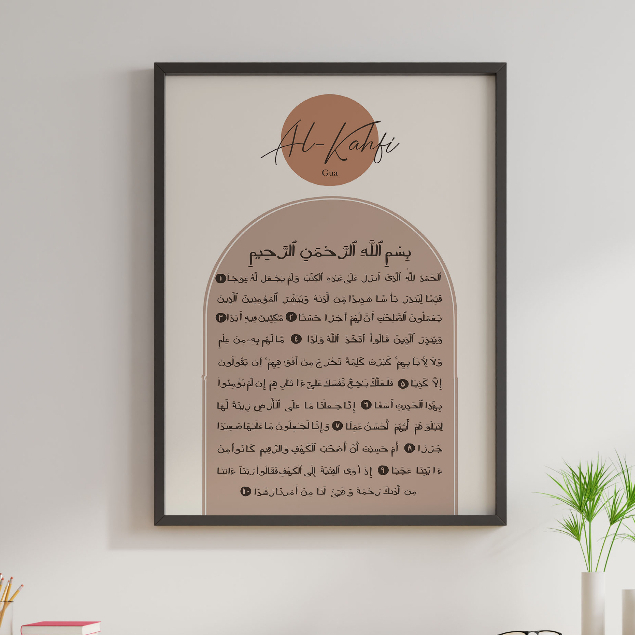 Al-Kahfi
Gua
بِسْمِ ٱللَّهِ ٱلرَّحْمَٰنِ ٱلرَّحِيمِ
ٱلْحَمْدُ لِلَّهِ ٱلَّذِىٓ أَنزَلَ عَلَىٰ عَبْدِهِ ٱلْكِتَٰبَ وَلَمْ يَجْعَل لَّهُۥ عِوَجَا ١
قَيِّمًا لِّيُنذِرَ بَأْسًا شَدِيدًا مِّن لَّدُنْهُ وَيُبَشِّرَ ٱلْمُؤْمِنِينَ ٱلَّذِينَ
يَعْمَلُونَ ٱلصَّٰلِحَٰتِ أَنَّ لَهُمْ أَجْرًا حَسَنًا ٢ مَّٰكِثِينَ فِيهِ أَبَدًا ٣
وَيُنذِرَ ٱلَّذِينَ قَالُوا۟ ٱتَّخَذَ ٱللَّهُ وَلَدًا ٤ مَّا لَهُم بِهِۦ مِنْ عِلْمٍ
وَلَا لِـَٔابَآئِهِمْ كَبُرَتْ كَلِمَةً تَخْرُجُ مِنْ أَفْوَٰهِهِمْ إِن يَقُولُونَ
إِلَّا كَذِبًا ٥ فَلَعَلَّكَ بَٰخِعٌ نَّفْسَكَ عَلَىٰٓ ءَاثَٰرِهِمْ إِن لَّمْ يُؤْمِنُوا۟
بِهَٰذَا ٱلْحَدِيثِ أَسَفًا ٦ إِنَّا جَعَلْنَا مَا عَلَى ٱلْأَرْضِ زِينَةً لَّهَا
لِنَبْلُوَهُمْ أَيُّهُمْ أَحْسَنُ عَمَلًا ٧ وَإِنَّا لَجَٰعِلُونَ مَا عَلَيْهَا صَعِيدًا
جُرُزًا ٨ أَمْ حَسِبْتَ أَنَّ أَصْحَٰبَ ٱلْكَهْفِ وَٱلرَّقِيمِ كَانُوا۟ مِنْ
ءَايَٰتِنَا عَجَبًا ٩ إِذْ أَوَى ٱلْفِتْيَةُ إِلَى ٱلْكَهْفِ فَقَالُوا۟ رَبَّنَآ ءَاتِنَا
مِن لَّدُنكَ رَحْمَةً وَهَيِّئْ لَنَا مِنْ أَمْرِنَا رَشَدًا ١٠